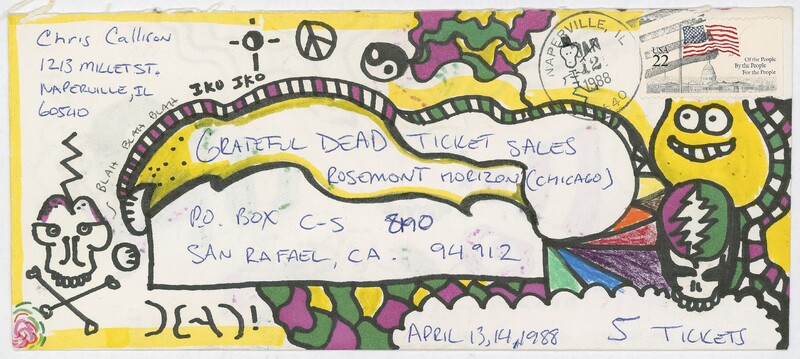 Chris Callison
1213 MILLET ST.
NAPERVILLE, IL
60540
IKO IKO
BLAH BLAH BLAH
NAPERVILLE, IL
JAN
12
1988
USA
22
Of the People
By the People
For the People
GRATEFUL DEAD TICKET SALES
ROSEMONT HORIZON (CHICAGO)
P.O. BOX C-S 8190
SAN RAFAEL, CA. 94912
APRIL 13,14, 1988
5 TICKETS